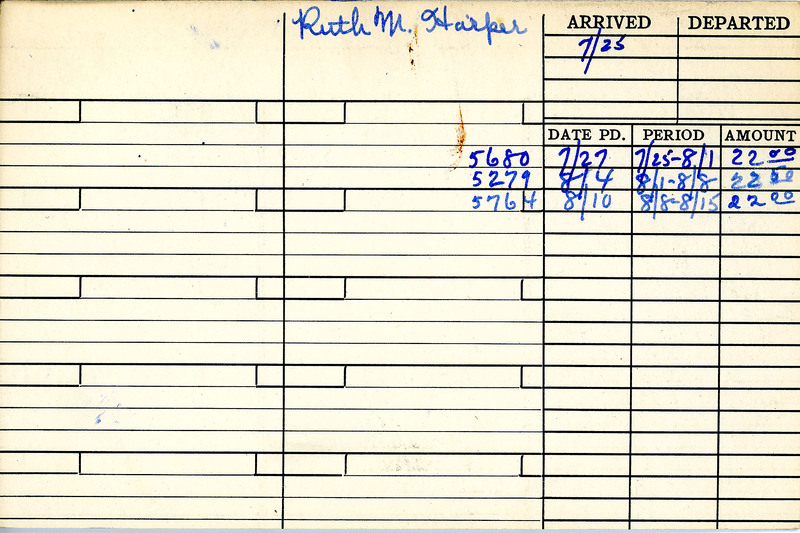 Ruth M. Harper
ARRIVED DEPARTED
7/25
DATE PD. PERIOD AMOUNT
5680 7/27 7/25-8/1 22 00
5279 8/4 8/1-8/8 22 00
5764 8/10 8/8-8/15 22 00